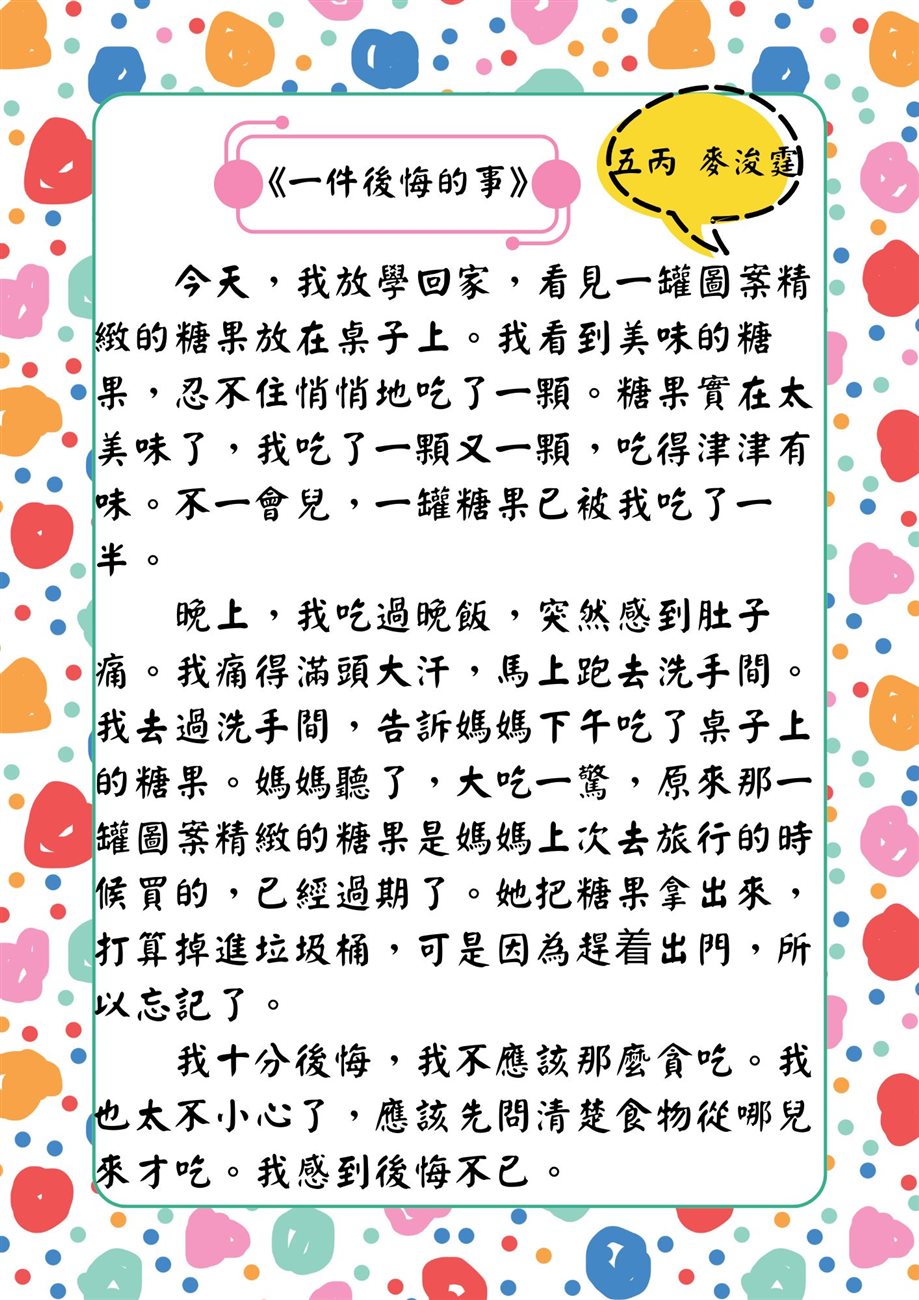 《一件後悔的事》
五丙 麥浚霆
今天，我放學回家，看見一罐圖案精
緻的糖果放在桌子上。我看到美味的糖
果，忍不住悄悄地吃了一顆。糖果實在太
美味了，我吃了一顆又一顆，吃得津津有
味。不一會兒，一罐糖果已被我吃了一
半。
晚上，我吃過晚飯，突然感到肚子
痛。我痛得滿頭大汗，馬上跑去洗手間。
我去過洗手間，告訴媽媽下午吃了桌子上
的糖果。媽媽聽了，大吃一驚，原來那一
罐圖案精緻的糖果是媽媽上次去旅行的時
候買的，已經過期了。她把糖果拿出來，
打算掉進垃圾桶，可是因為趕着出門，所
以忘記了。
我十分後悔，我不應該那麼貪吃。我
也太不小心了，應該先問清楚食物從哪兒
來才吃。我感到後悔不已。